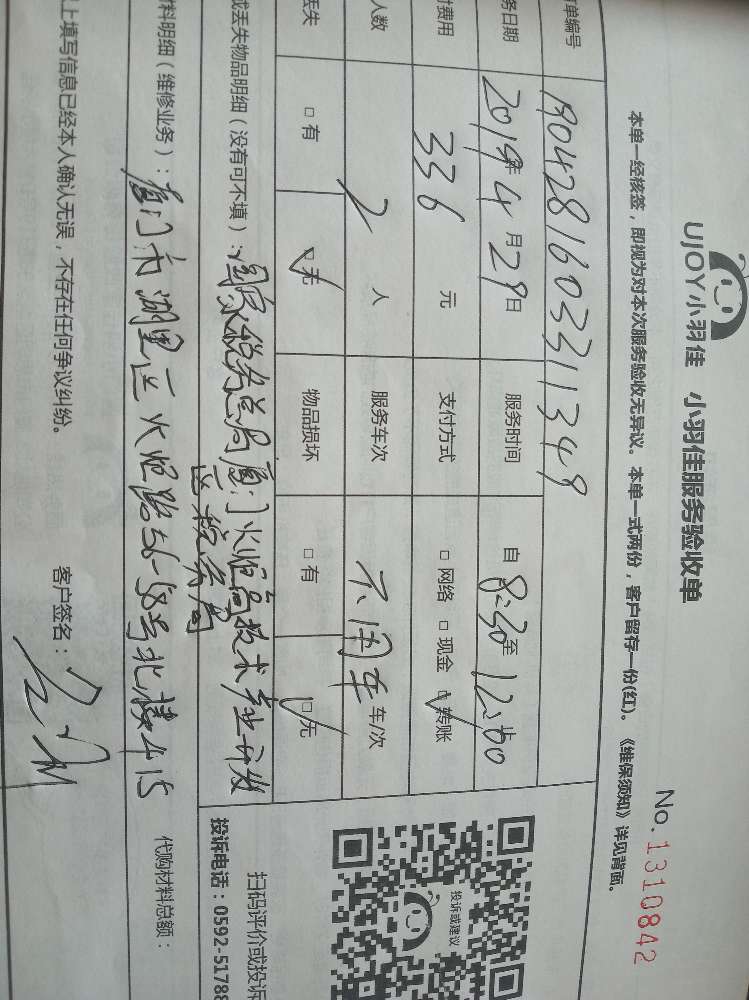 UJOY小羽佳 小羽佳服务验收单
No. 1310842
本单一经核签，即视为对本次服务验收无异议。本单一式两份，客户留存一份(红)。《维保须知》详见背面。
单编号 1904281603311349
务日期 2019年4月29日 服务时间 自8:30至12:00止
费用 336元 支付方式 □网络 □现金 ☑转账
人数 2人 服务车次 不用车 车/次
丢失 □有 ☑无 物品损坏 □有 ☑无
或丢失物品明细（没有可不填）：国家税务总局厦门火炬高技术产业开发
区税务局
料明细（维修业务）：厦门市湖里区火炬路56-58号北楼415
代购材料总额：
上填写信息已经本人确认无误，不存在任何争议纠纷。
客户签名：
投诉或建议
扫码评价或投诉
投诉电话：0592-51788